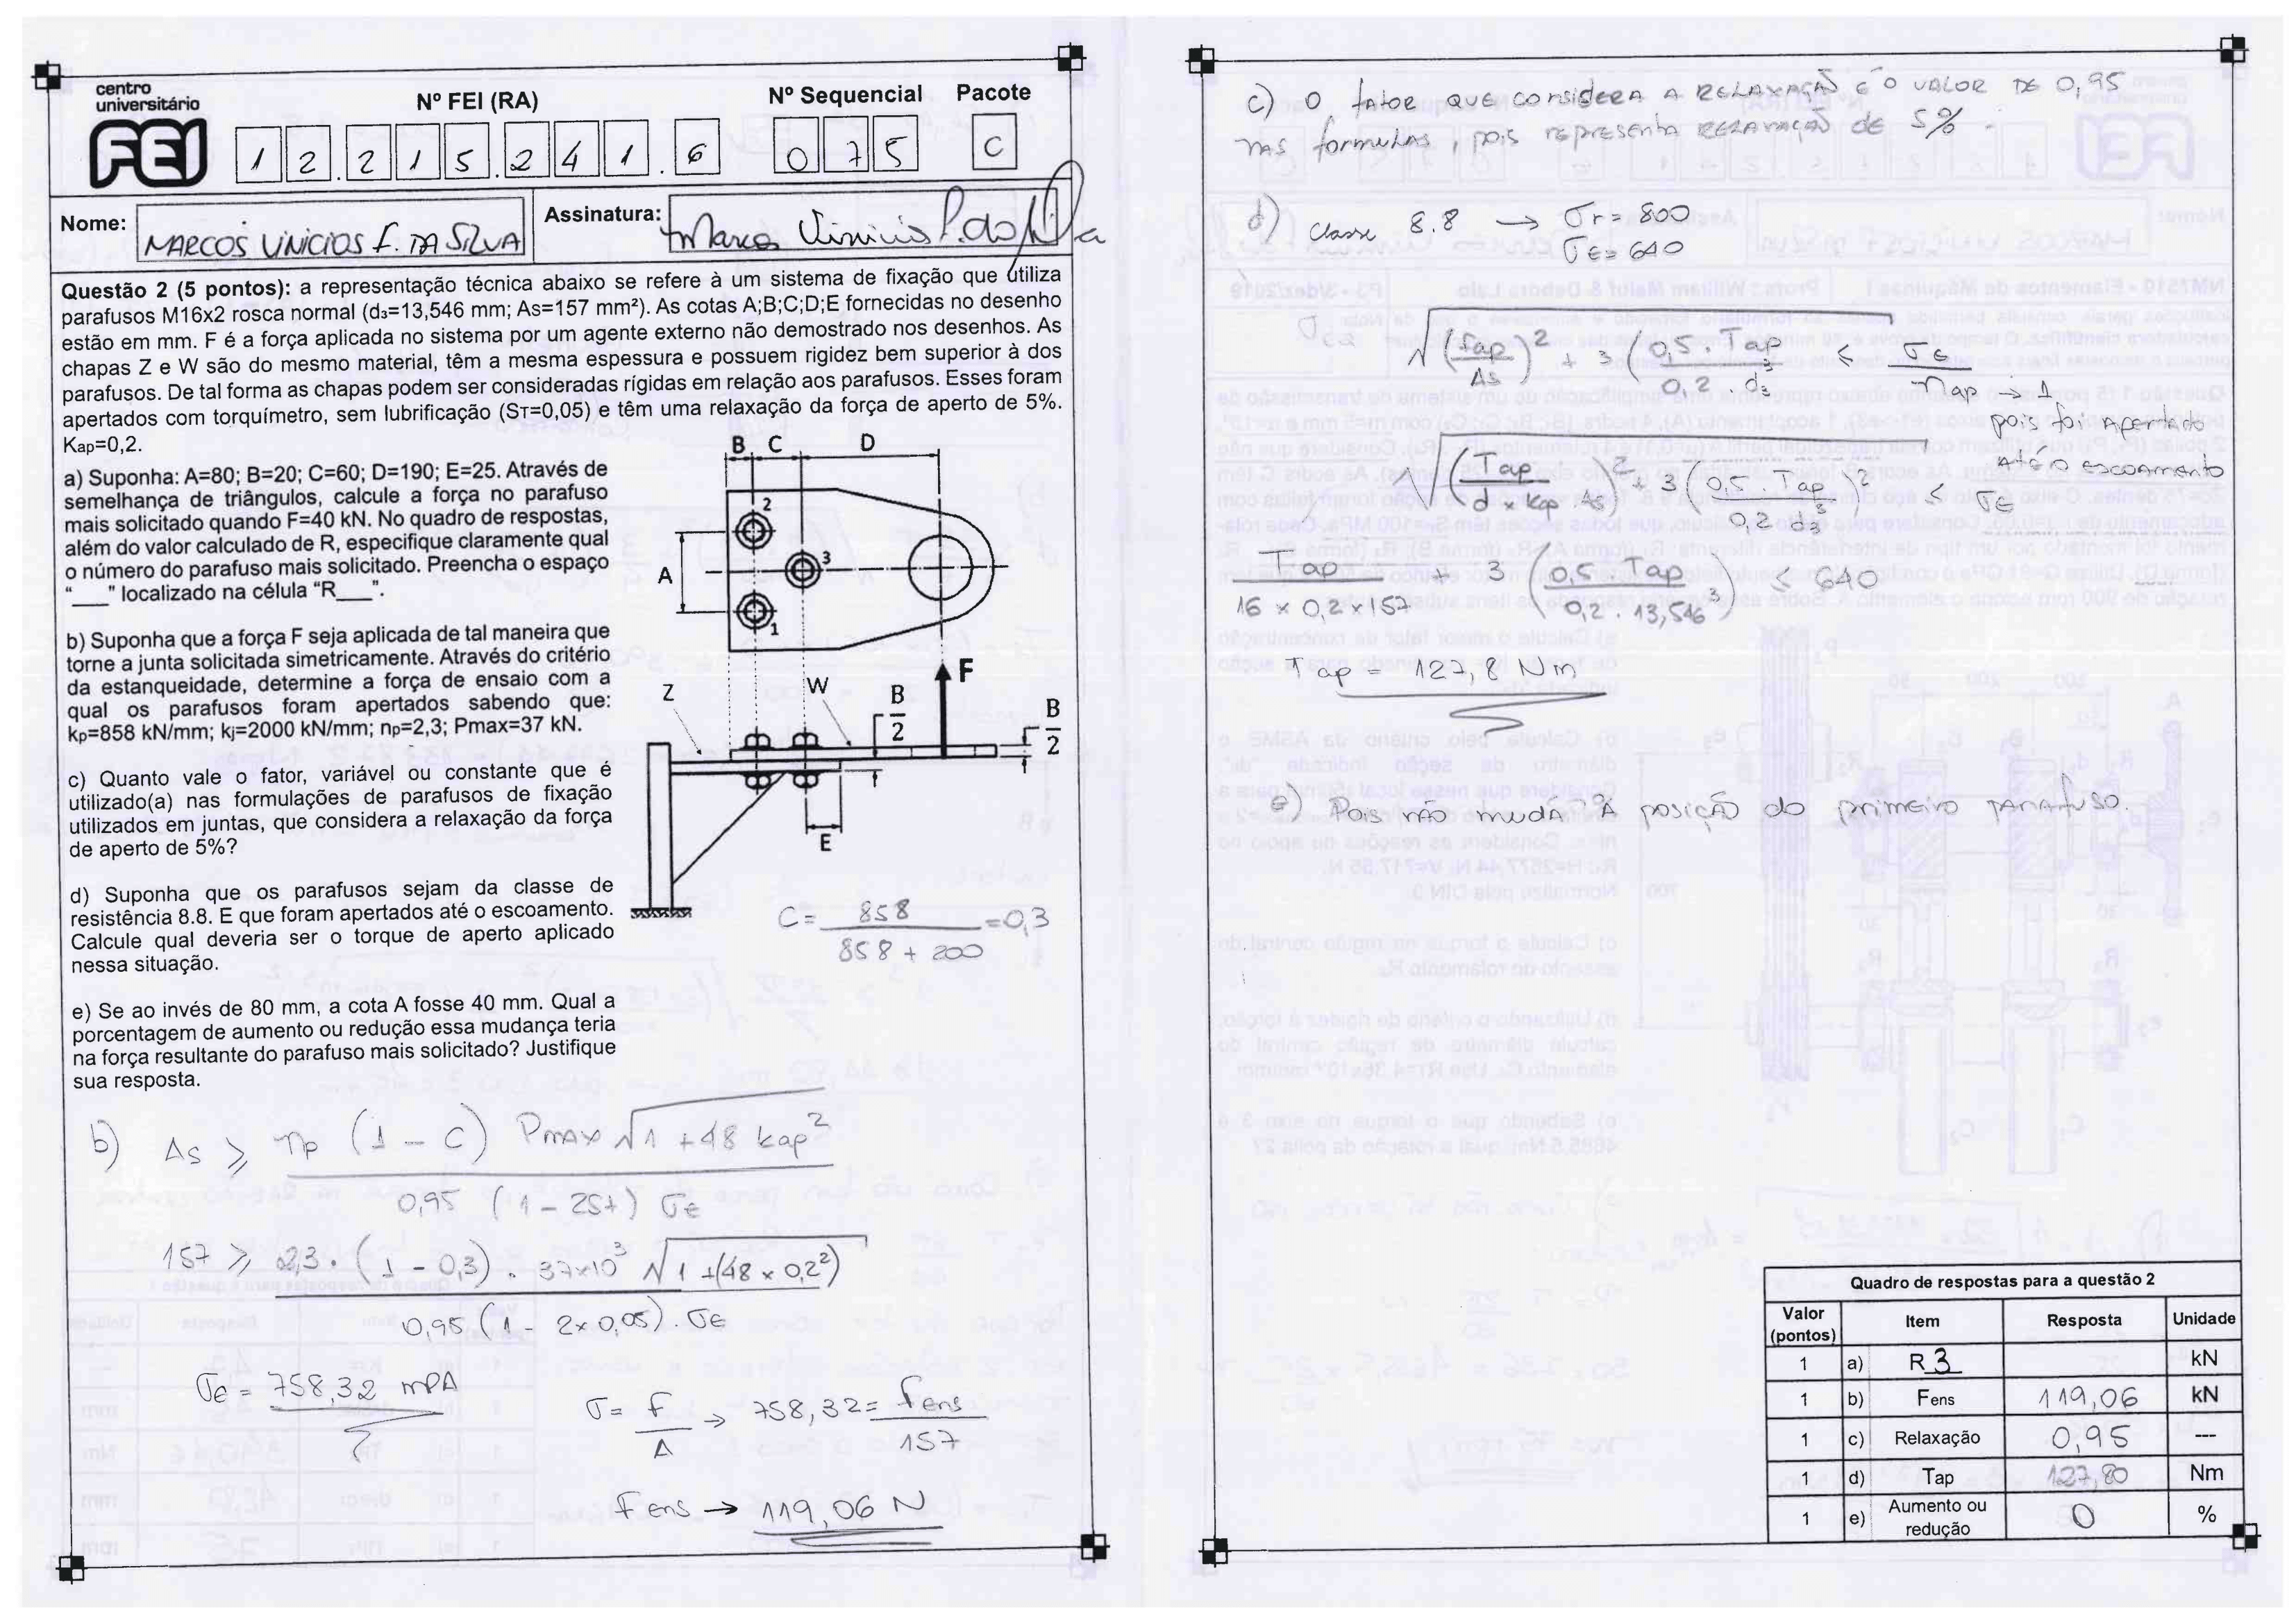 centro
universitário
FEI
Nº FEI (RA)
Nº Sequencial
Pacote
1 2 . 2 1 5 . 2 4 1 . 6
0 7 5
C
Nome:
MARCOS VINICIOS F. DA SILVA
Assinatura:
Marcos Vinicius F. da Silva
Questão 2 (5 pontos): a representação técnica abaixo se refere à um sistema de fixação que utiliza
parafusos M16x2 rosca normal (d₃=13,546 mm; As=157 mm²). As cotas A;B;C;D;E fornecidas no desenho
estão em mm. F é a força aplicada no sistema por um agente externo não demostrado nos desenhos. As
chapas Z e W são do mesmo material, têm a mesma espessura e possuem rigidez bem superior à dos
parafusos. De tal forma as chapas podem ser consideradas rígidas em relação aos parafusos. Esses foram
apertados com torquímetro, sem lubrificação (Sᴛ=0,05) e têm uma relaxação da força de aperto de 5%.
Kap=0,2.
a) Suponha: A=80; B=20; C=60; D=190; E=25. Através de
semelhança de triângulos, calcule a força no parafuso
mais solicitado quando F=40 kN. No quadro de respostas,
além do valor calculado de R, especifique claramente qual
o número do parafuso mais solicitado. Preencha o espaço
"___" localizado na célula "R___".
b) Suponha que a força F seja aplicada de tal maneira que
torne a junta solicitada simetricamente. Através do critério
da estanqueidade, determine a força de ensaio com a
qual os parafusos foram apertados sabendo que:
kp=858 kN/mm; kj=2000 kN/mm; np=2,3; Pmax=37 kN.
c) Quanto vale o fator, variável ou constante que é
utilizado(a) nas formulações de parafusos de fixação
utilizados em juntas, que considera a relaxação da força
de aperto de 5%?
d) Suponha que os parafusos sejam da classe de
resistência 8.8. E que foram apertados até o escoamento.
Calcule qual deveria ser o torque de aperto aplicado
nessa situação.
e) Se ao invés de 80 mm, a cota A fosse 40 mm. Qual a
porcentagem de aumento ou redução essa mudança teria
na força resultante do parafuso mais solicitado? Justifique
sua resposta.
B C D
2
A
3
1
F
Z
W
B/2
B/2
E
C = 858 / (858 + 200) = 0,3
b) As ⩾ np (1 - C) Pmax √(1 + 48 kap²) / 0,95 (1 - 2St) σe
157 ⩾ 2,3 . (1 - 0,3) . 37x10³ √(1 + (48 x 0,2²)) / 0,95 (1 - 2x0,05) . σe
σe = 758,32 mPA
σ = F/A → 758,32 = Fens/157
Fens → 119,06 N
c) O fator que considera a RELAXAÇÃO É O VALOR DE 0,95
nas formulas, pois representa RELAXAÇÃO de 5%.
d) classe 8.8 → σr = 800
σe = 640
√((fap/As)² + 3 (0,5 . Tap / 0,2 . d₃³)) ≤ σe / nap → 1
pois foi apertado
até o escoamento
√((Tap / d x kap . As)² + 3 (0,5 . Tap / 0,2 d₃³)²) ≤ σe
Tap / 16 x 0,2 x 157 + 3 (0,5 . Tap / 0,2 . 13,546³) ≤ 640
Tap = 127,8 Nm
e) Pois não muda a posição do primeiro parafuso.
Quadro de respostas para a questão 2
Valor (pontos) Item Resposta Unidade
1 a) R 3 kN
1 b) Fens 119,06 kN
1 c) Relaxação 0,95 ---
1 d) Tap 127,80 Nm
1 e) Aumento ou redução 0 %